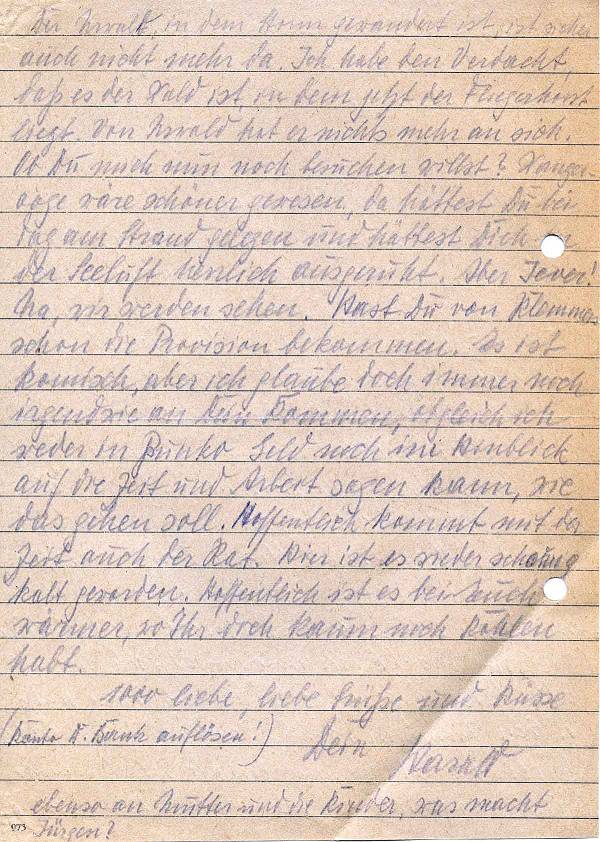 Der Urwald, in dem Horn gewandert ist, ist sicher
auch nicht mehr da. Ich habe den Verdacht,
daß es der Wald ist, in dem jetzt der Fliegerhorst
liegt. Von Urwald hat er nichts mehr an sich.
Ob Du mich nun noch besuchen willst? Wanger-
ooge wäre schöner gewesen, da hättest Du bei
Tag am Strand gelegen und hättest Dich in
der Seeluft herrlich ausgeruht. Aber Jever!
Na, wir werden sehen. Hast Du von Klemmers
schon die Provision bekommen. Es ist
komisch, aber ich glaube doch immer noch
irgendwie an Dein Kommen, obgleich ich
weder in Punkto Geld noch im Hinblick
auf die Zeit und Arbeit sagen kann, wie
das gehen soll. Hoffentlich kommt mit der
Zeit auch der Rat. Hier ist es wieder schaurig
kalt geworden. Hoffentlich ist es bei Euch
wärmer, wo Ihr doch kaum noch Kohlen
habt.
1000 liebe, liebe Grüße und Küsse
(Konto D. Bank auflösen!)
Dein Harald
ebenso an Mutter und die Kinder, was macht
Jürgen?
073